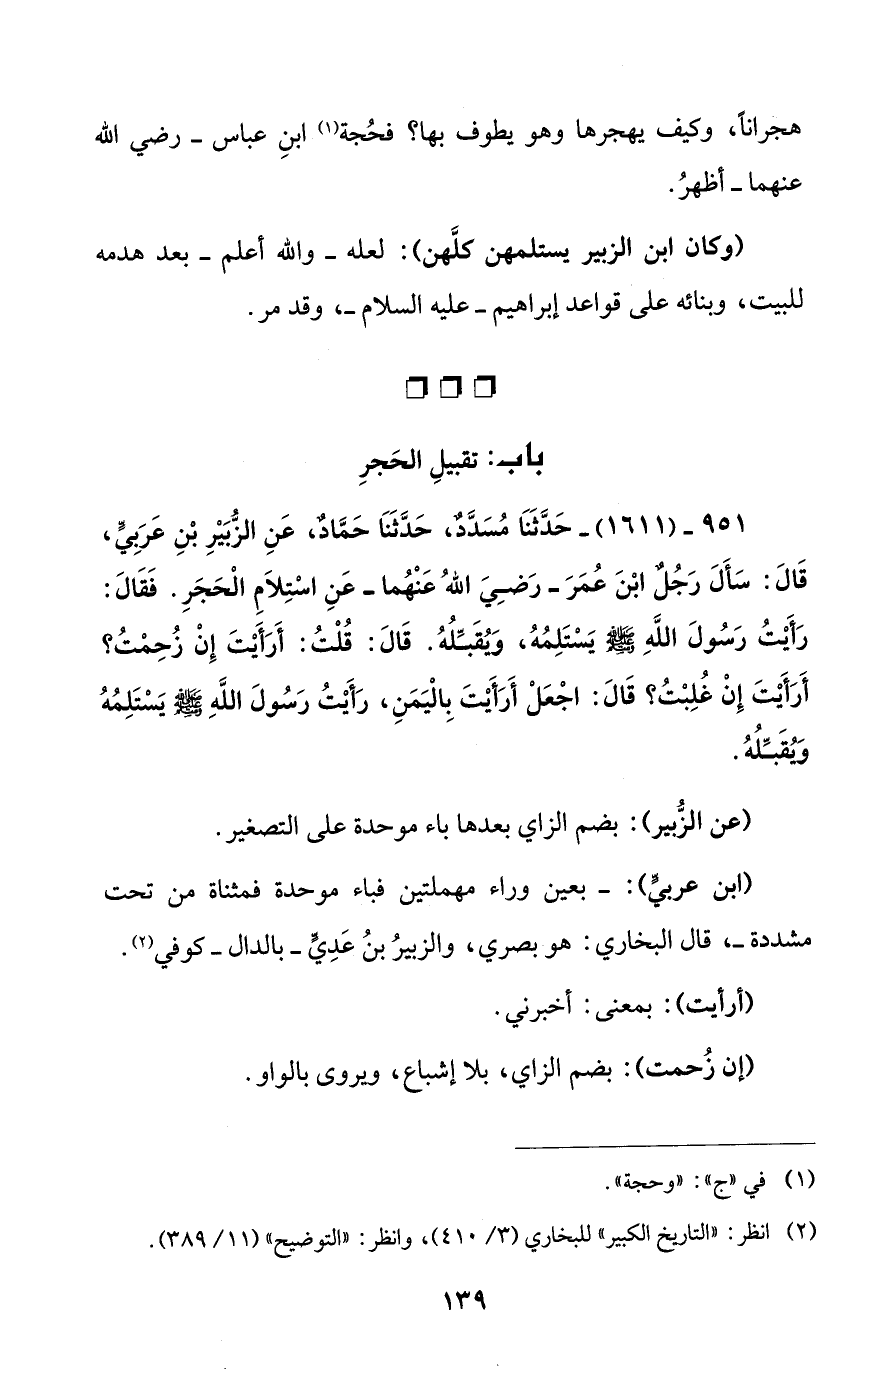 هجراناً، وكيف يهجرها وهو يطوف بها؟ فحُجة(١) ابنِ عباس ـ رضي الله
عنهما ـ أظهرُ.
(وكان ابن الزبير يستلمهن كلَّهن): لعله ـ والله أعلم ـ بعد هدمه
للبيت، وبنائه على قواعد إبراهيم ـ عليه السلام ـ، وقد مر.
باب: تقبيلِ الحَجرِ
٩٥١ ـ (١٦١١) ـ حَدَّثَنَا مُسَدَّدٌ، حَدَّثَنَا حَمَّادٌ، عَنِ الزُّبَيْرِ بْنِ عَرَبِيٍّ،
قَالَ: سَأَلَ رَجُلٌ ابْنَ عُمَرَ ـ رَضِيَ اللهُ عَنْهُما ـ عَنِ اسْتِلاَمِ الْحَجَرِ. فَقَالَ:
رَأَيْتُ رَسُولَ اللَّهِ ﷺ يَسْتَلِمُهُ، وَيُقَبِّلُهُ. قَالَ: قُلْتُ: أَرَأَيْتَ إِنْ زُحِمْتُ؟
أَرَأَيْتَ إِنْ غُلِبْتُ؟ قَالَ: اجْعَلْ أَرَأَيْتَ بِالْيَمَنِ، رَأَيْتُ رَسُولَ اللَّهِ ﷺ يَسْتَلِمُهُ
وَيُقَبِّلُهُ.
(عن الزُّبير): بضم الزاي بعدها باء موحدة على التصغير.
(ابن عربيٍّ): ـ بعين وراء مهملتين فباء موحدة فمثناة من تحت
مشددة ـ، قال البخاري: هو بصري، والزبيرُ بنُ عَدِيٍّ ـ بالدال ـ كوفي(٢).
(أرأيت): بمعنى: أخبرني.
(إن زُحمت): بضم الزاي، بلا إشباع، ويروى بالواو.
(١) في «ج»: «وحجة».
(٢) انظر: «التاريخ الكبير» للبخاري (٣/ ٤١٠)، وانظر: «التوضيح» (١١/ ٣٨٩).
١٣٩